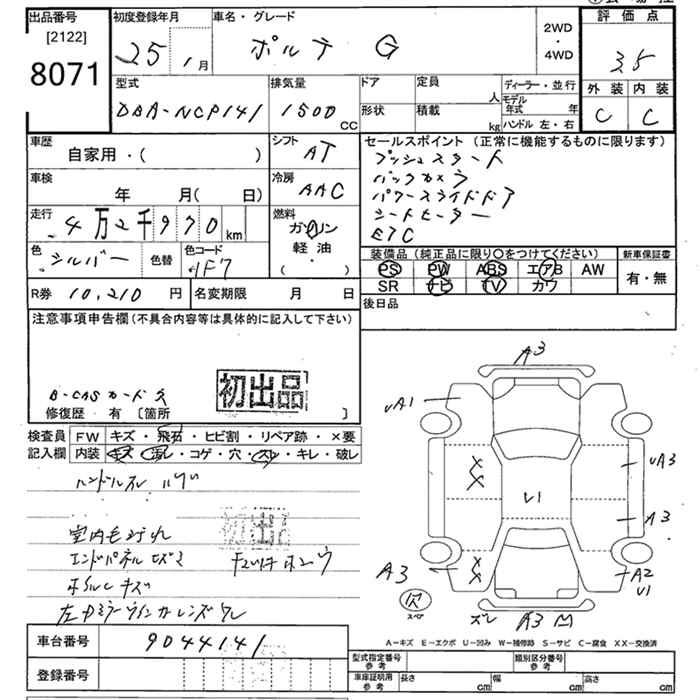 出品番号
[2122]
8071
初度登録年月
25 1月
車名・グレード
ポルテ G
2WD
・
4WD
評価点
3.5
外装 内装
C C
型式
DBA-NCP141
排気量
1500 CC
ドア
形状
定員 人
積載 kg
ディーラー・並行
モデル年式 年
ハンドル 左・右
車歴
自家用・( )
シフト
AT
車検
年 月( 日)
冷房
AAC
走行
4万2千970 km
燃料
ガソリン
軽油・
( )
色
シルバー
色替
色コード
1F7
R券 10,210 円
名変期限 月 日
セールスポイント(正常に機能するものに限ります)
プッシュスタート
バックカメラ
パワースライドドア
シートヒーター
ETC
装備品(純正品に限り〇をつけてください)
新車保証書
PS PW ABS エアB AW
SR ナビ TV カワ
有・無
後日品
注意事項申告欄(不具合内容等は具体的に記入して下さい)
B-CASカード欠
初出品
修復歴 有 [箇所 ]
検査員
記入欄
FW キズ・飛石・ヒビ割・リペア跡・×要
内装 キズ・汚レ・コゲ・穴・スレ・キレ・破レ
ハンドルスレ
初出品
室内毛汚れ
エンドパネルヒズミ
ホイルキズ
左ドアミラーウインカーレンズワレ
車台番号 9044141
登録番号
A3
UA1
UA3
U1
A3
A3
A2
U1
欠
スペア
ズレ
A3
A-キズ E-エクボ U-凹み W-補修跡 S-サビ C-腐食 XX-交換済
型式指定番号
参考
類別区分番号
参考
車庫証明用
参考
長さ cm
幅 cm
高さ cm